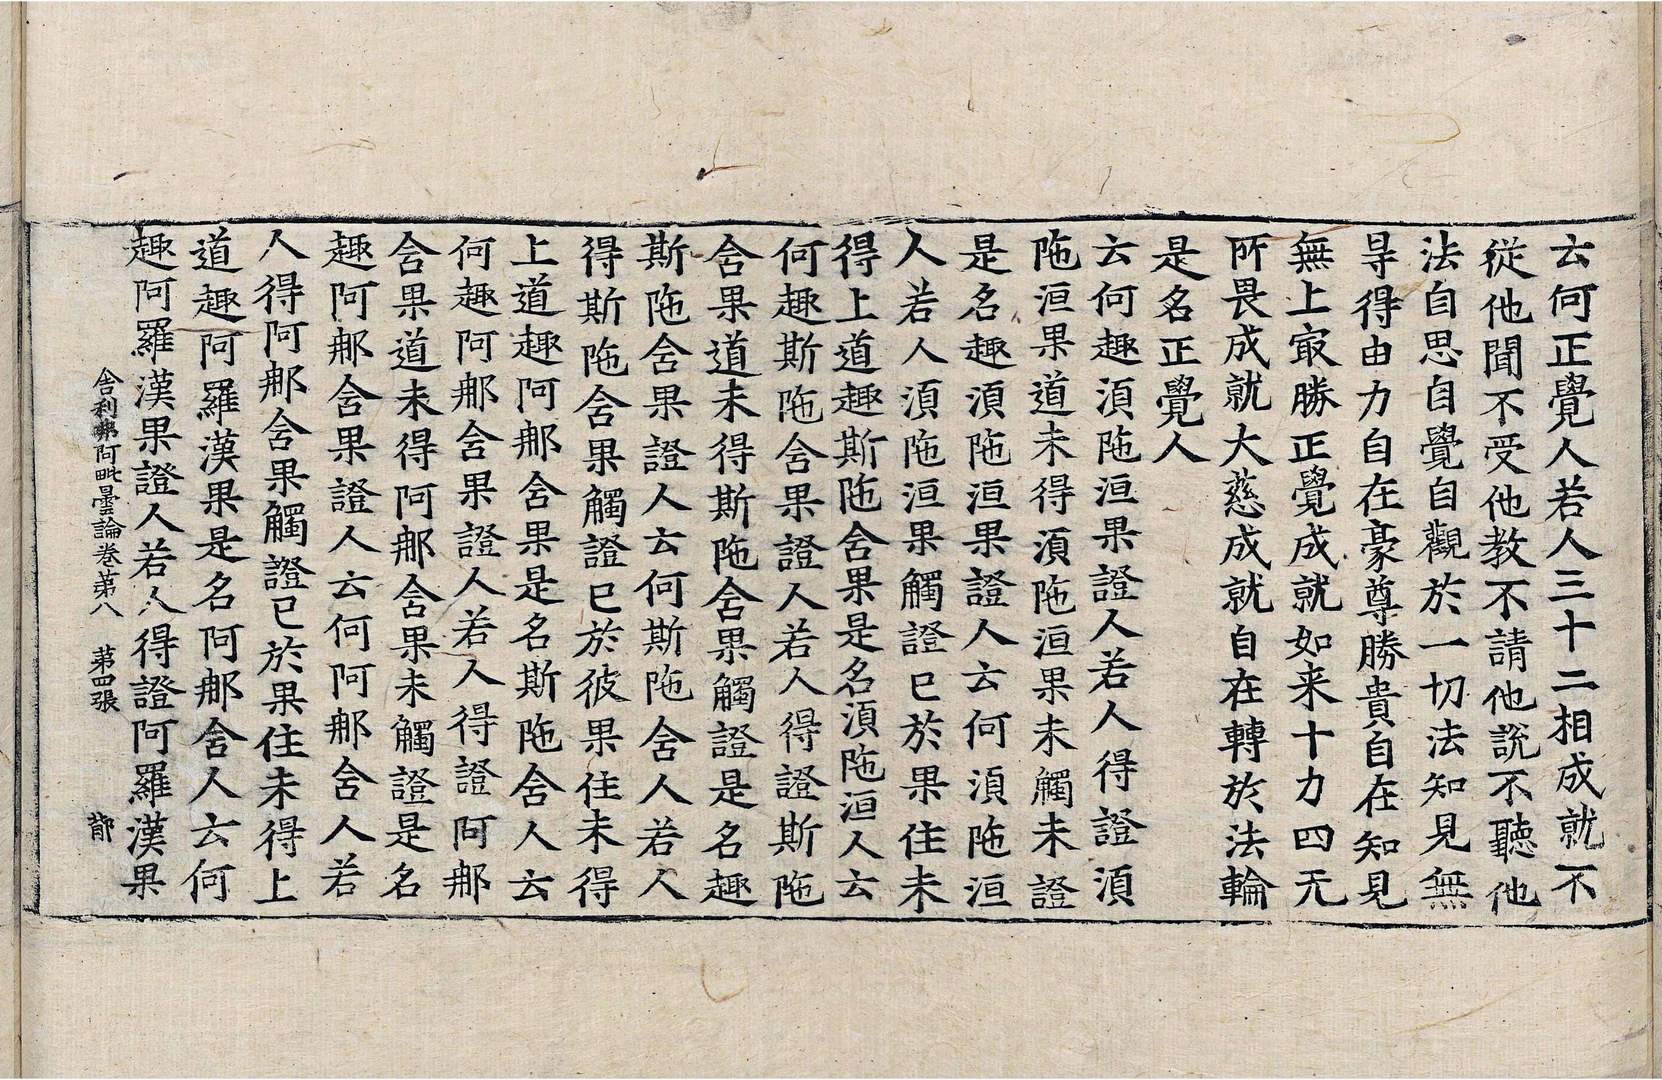 云何正覺人若人三十二相成就不
從他聞不受他教不請他說不聽他
法自思自覺自觀於一切法知見無
㝵得由力自在豪尊勝貴自在知見
無上㝡勝正覺成就如来十力四无
所畏成就大慈成就自在轉於法輪
是名正覺人
云何趣湏陁洹果證人若人得證湏
陁洹果道未得湏陁洹果未觸未證
是名趣湏陁洹果證人云何湏陁洹
人若人湏陁洹果觸證已於果住未
得上道趣斯陁含果是名湏陁洹人云
何趣斯陁含果證人若人得證斯陁
含果道未得斯陁含果觸證是名趣
斯陁含果證人云何斯陁含人若人
得斯陁含果觸證已於彼果住未得
上道趣阿𨚗含果是名斯陁含人云
何趣阿𨚗含果證人若人得證阿𨚗
含果道未得阿𨚗含果未觸證是名
趣阿𨚗含果證人云何阿𨚗含人若
人得阿𨚗含果觸證已於果住未得上
道趣阿羅漢果是名阿𨚗含人云何
趣阿羅漢果證人若人得證阿羅漢果
舍利弗阿毗曇論卷第八 第四張